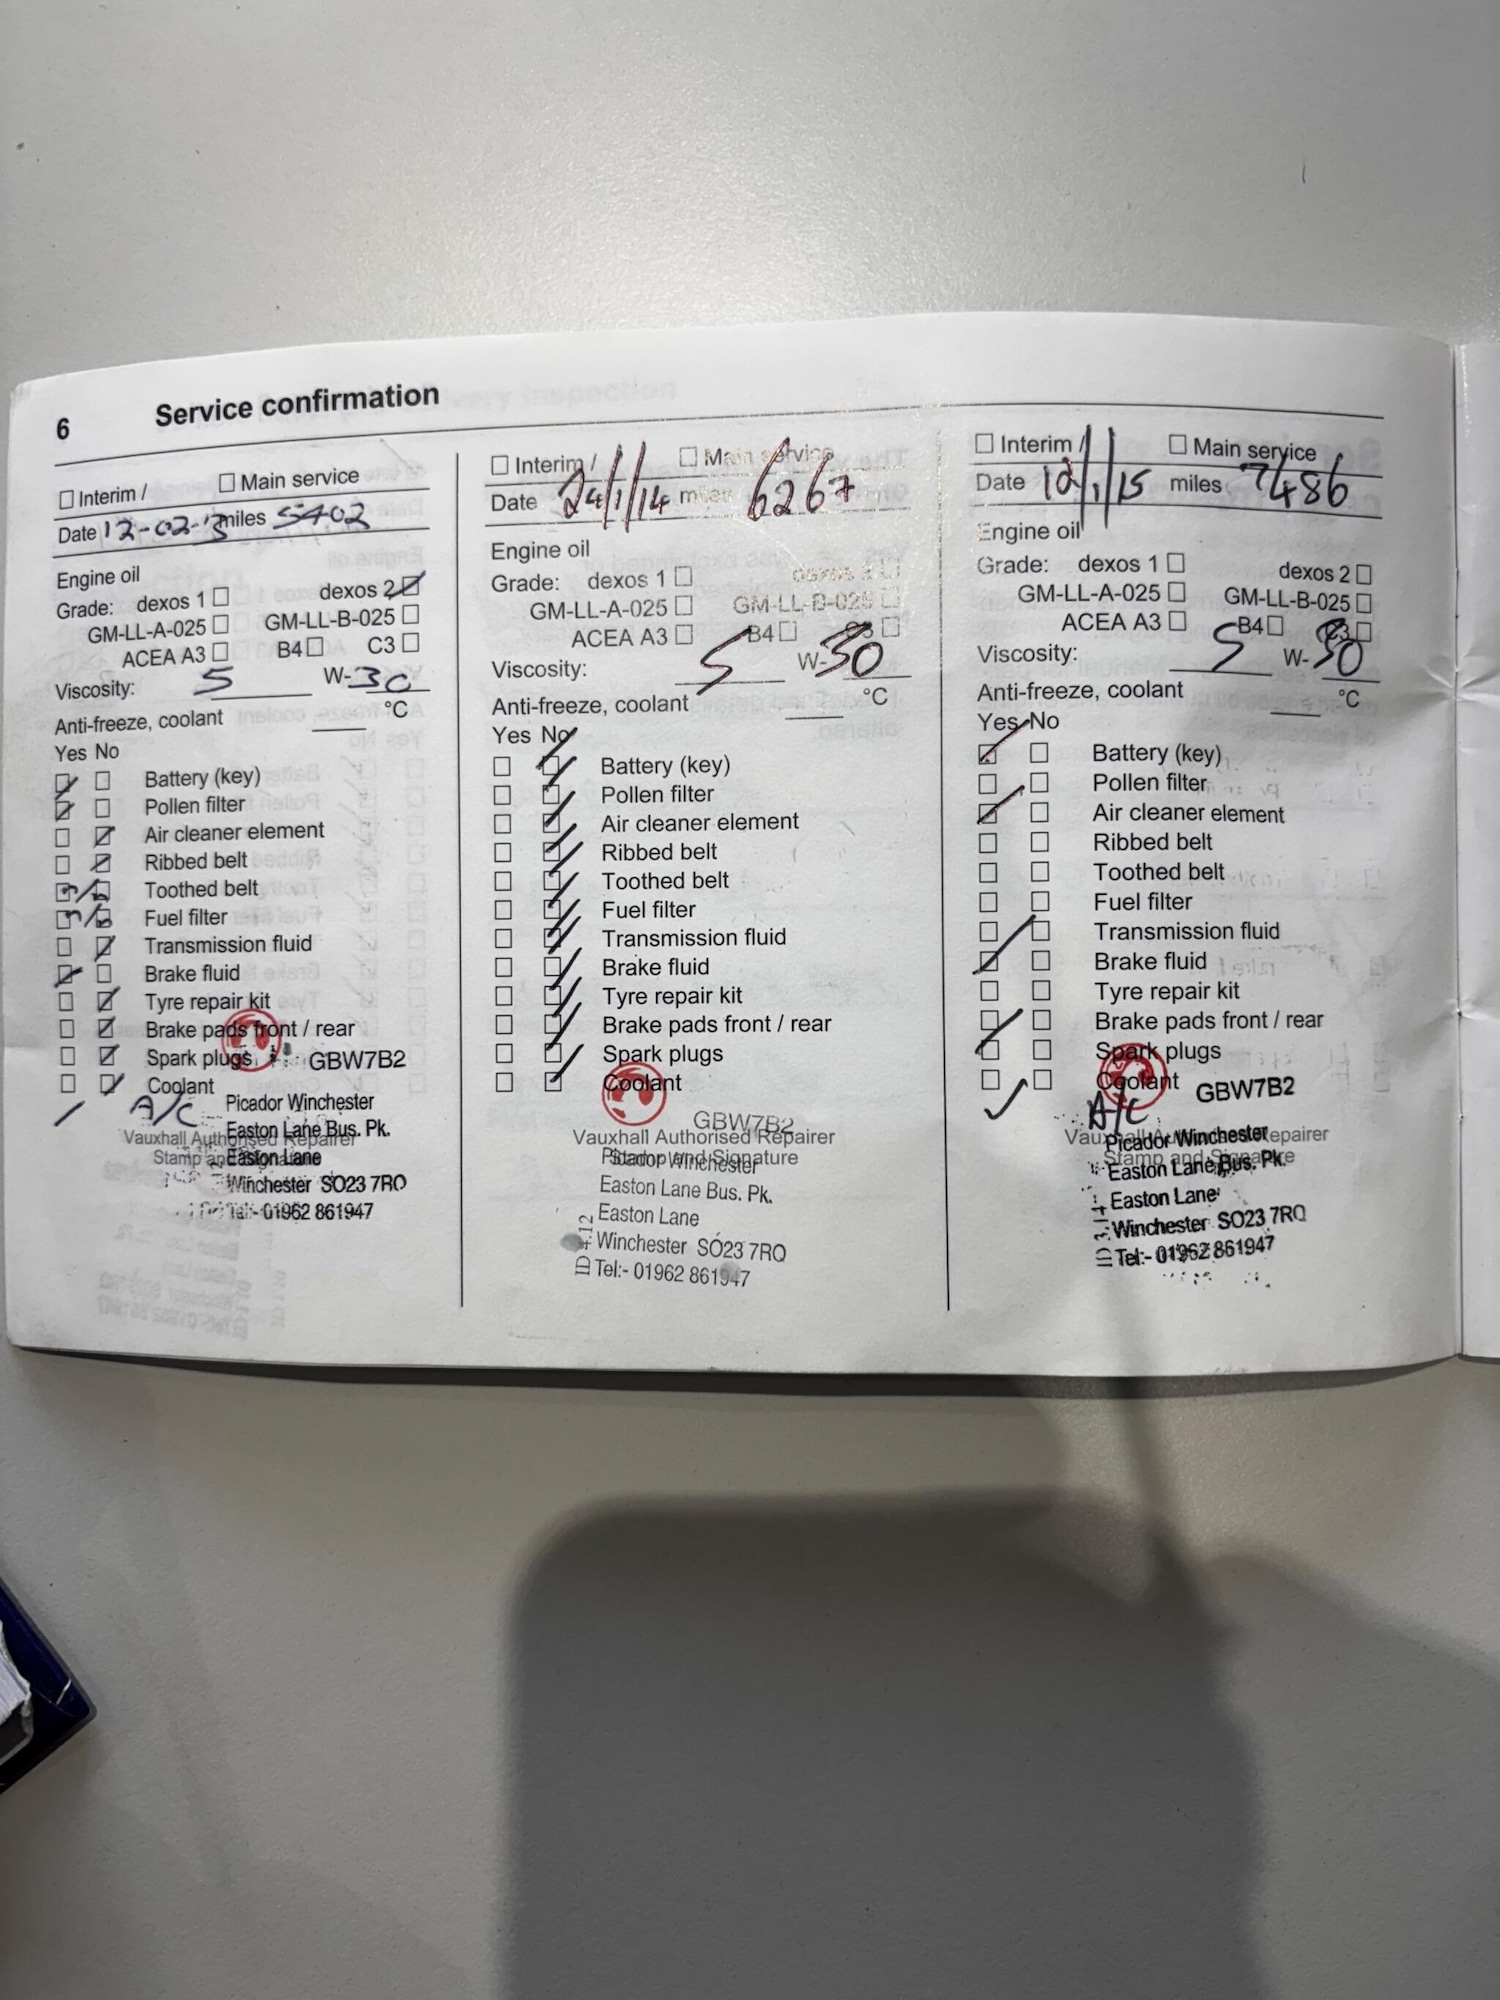 6 Service confirmation
☐ Interim / ☐ Main service
Date 12-02-13 miles 5402
Engine oil
Grade: dexos 1 ☐ dexos 2 ☑
GM-LL-A-025 ☐ GM-LL-B-025 ☐
ACEA A3 ☐ B4 ☐ C3 ☐
Viscosity: 5 W-30
Anti-freeze, coolant ____ °C
Yes No
☑ ☐ Battery (key)
☑ ☐ Pollen filter
☐ ☑ Air cleaner element
☐ ☑ Ribbed belt
n/a Toothed belt
n/a Fuel filter
☐ ☑ Transmission fluid
☑ ☐ Brake fluid
☐ ☑ Tyre repair kit
☐ ☑ Brake pads front / rear
☐ ☑ Spark plugs
GBW7B2
☐ ☑ Coolant
/ A/C
Picador Winchester
Vauxhall Authorised Repairer
Easton Lane Bus. Pk.
Stamp and Signature
Easton Lane
Winchester SO23 7RQ
Tel:- 01962 861947
☐ Interim / ☐ Main service
Date 24/1/14 miles 6267
Engine oil
Grade: dexos 1 ☐ dexos 2 ☐
GM-LL-A-025 ☐ GM-LL-B-025 ☐
ACEA A3 ☐ B4 ☐ C3 ☐
Viscosity: 5 W-30
Anti-freeze, coolant ____ °C
Yes No
☐ ☑ Battery (key)
☐ ☑ Pollen filter
☐ ☑ Air cleaner element
☐ ☑ Ribbed belt
☐ ☑ Toothed belt
☐ ☑ Fuel filter
☐ ☑ Transmission fluid
☐ ☑ Brake fluid
☐ ☑ Tyre repair kit
☐ ☑ Brake pads front / rear
☐ ☑ Spark plugs
☐ ☑ Coolant
GBW7B2
Vauxhall Authorised Repairer
Stamp and Signature
Picador Winchester
Easton Lane Bus. Pk.
Easton Lane
Winchester SO23 7RQ
Tel:- 01962 861947
☐ Interim / ☐ Main service
Date 12/1/15 miles 7486
Engine oil
Grade: dexos 1 ☐ dexos 2 ☐
GM-LL-A-025 ☐ GM-LL-B-025 ☐
ACEA A3 ☐ B4 ☐ C3 ☐
Viscosity: 5 W-30
Anti-freeze, coolant ____ °C
Yes No
☑ ☐ Battery (key)
☐ ☐ Pollen filter
☑ ☐ Air cleaner element
☐ ☐ Ribbed belt
☐ ☐ Toothed belt
☐ ☐ Fuel filter
☐ ☐ Transmission fluid
☑ ☐ Brake fluid
☐ ☐ Tyre repair kit
☐ ☐ Brake pads front / rear
☑ ☐ Spark plugs
☐ ☐ Coolant
GBW7B2
✓ A/C
Vauxhall Authorised Repairer
Picador Winchester
Stamp and Signature
Easton Lane Bus. Pk.
Easton Lane
Winchester SO23 7RQ
Tel:- 01962 861947